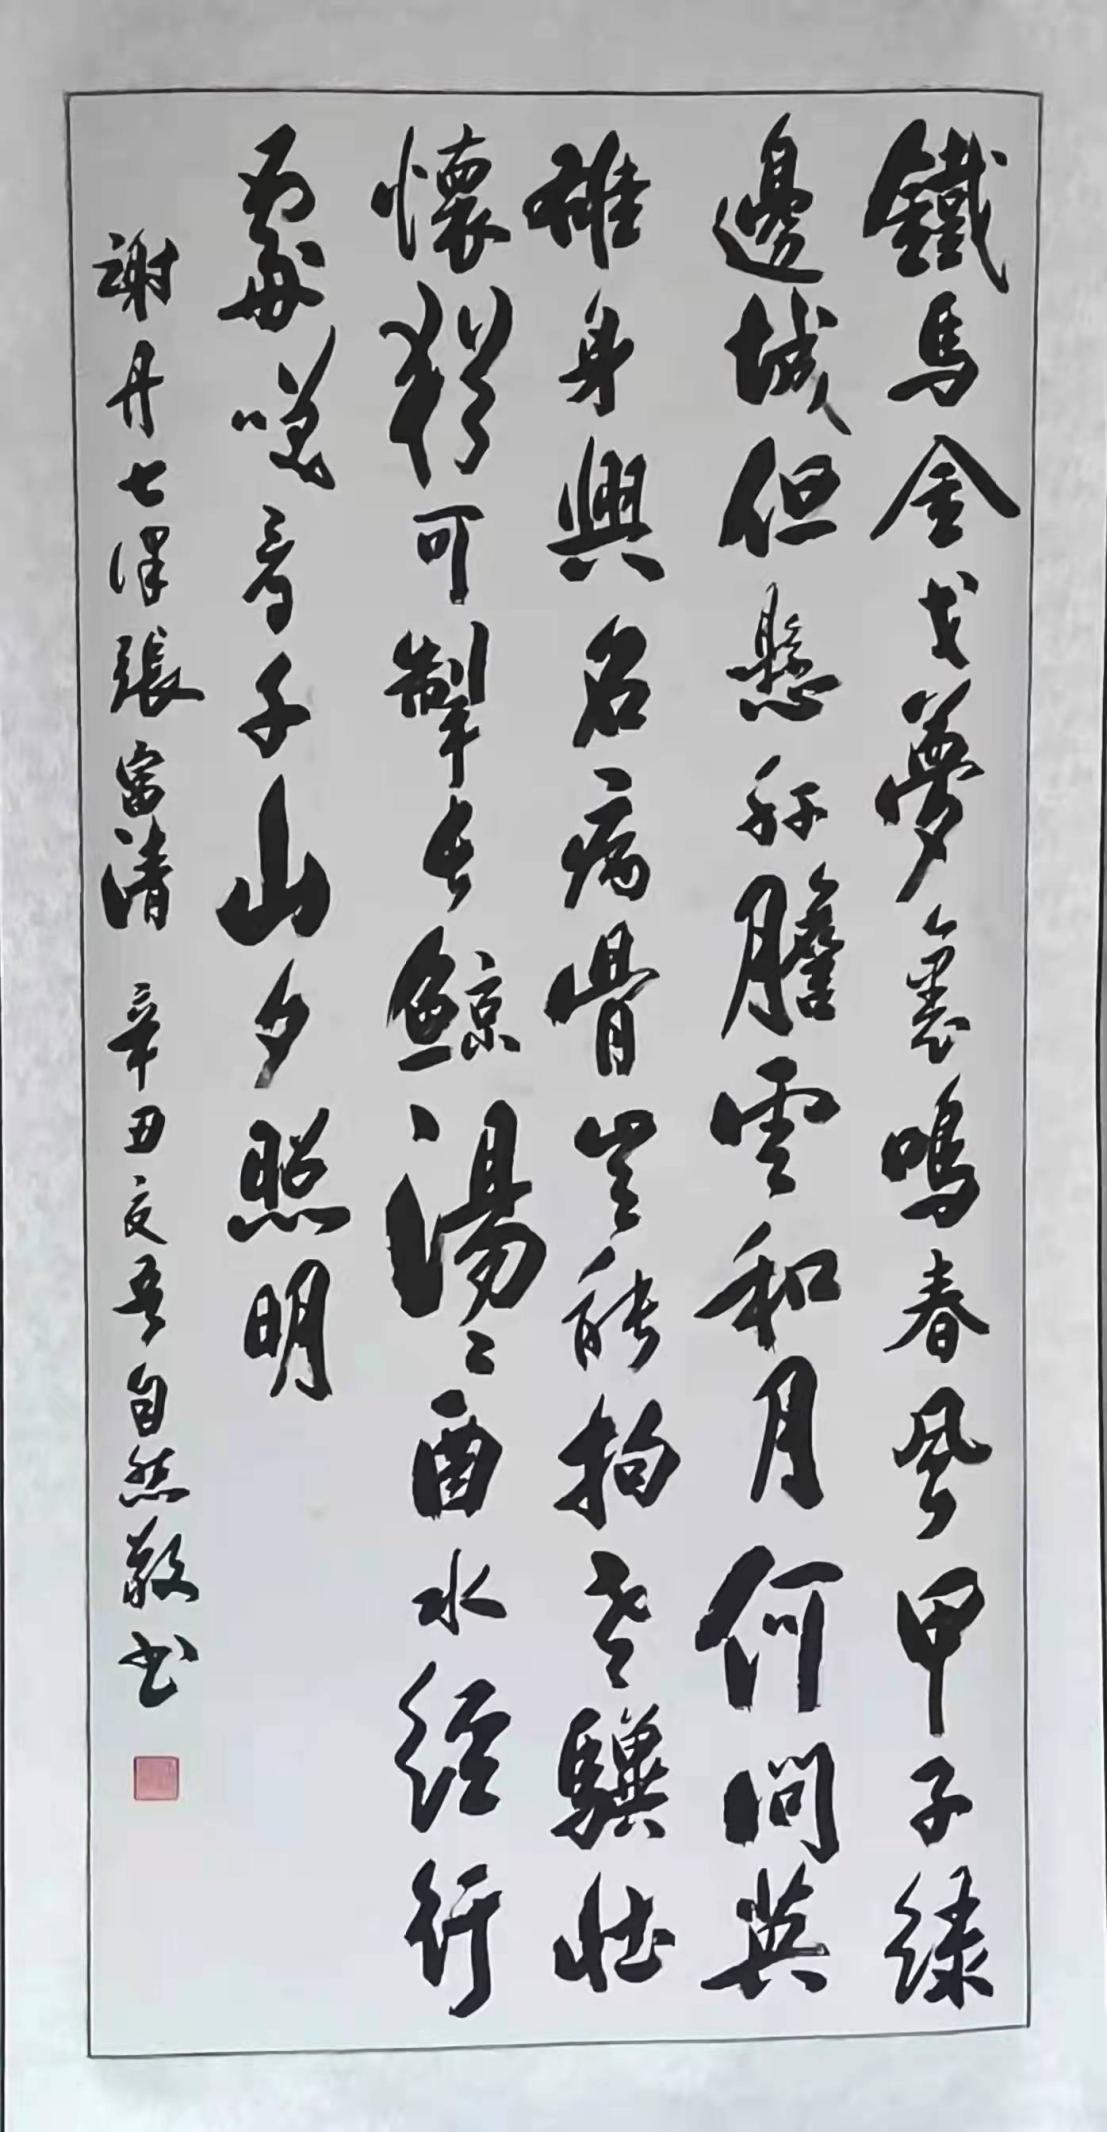 鐵馬金戈夢裏鳴春風甲子綠
邊城但懸肝膽雲和月何問英
雄身與名病骨豈能拘老驥壯
懷猶可掣長鯨湯湯酉水經行
處嘆音千山夕照明
謝丹七律張富清 辛丑文吾自然敬书